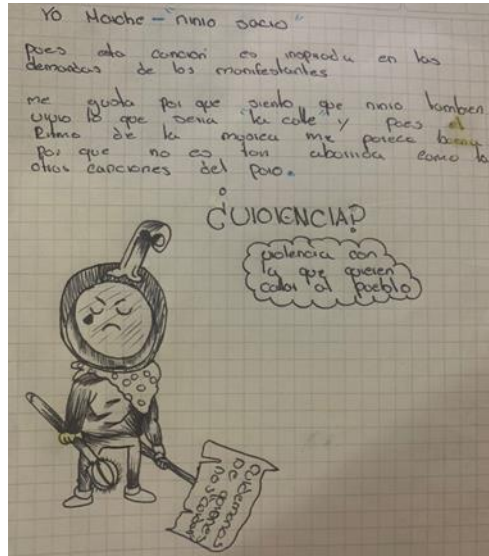 Yo Marche - "ninio sacro"
pues esta cancion es inspirada en las
demandas de los manifestantes
me gusta por que siento que ninio tambien
vivio lo que seria "la calle" y pues el
Ritmo de la musica me parece
por que no es tan aburrida como
otras canciones del paro.
¿VIOLENCIA?
violencia con
la que quieren
callar al pueblo
cuidemonos
DE quienes
nos cuidan